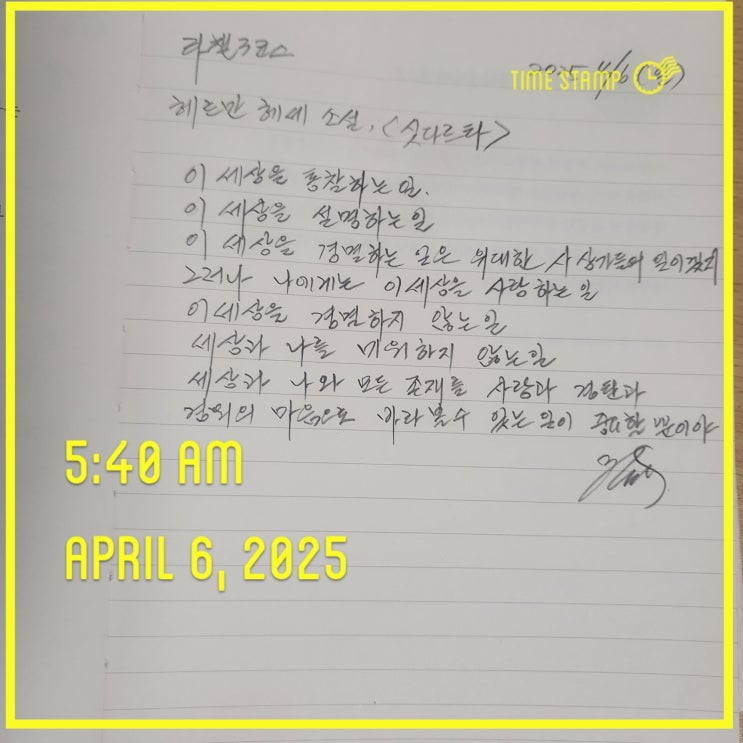 라헬코스
2025 4/6 (일)
TIME STAMP
헤르만 헤세 소설, <싯다르타>
이 세상을 통찰하는 일.
이 세상을 설명하는 일
이 세상을 경멸하는 일은 위대한 사상가들의 일이겠지
그러나 나에게는 이세상을 사랑하는 일
이세상을 경멸하지 않는일
세상과 나를 미워하지 않는일
세상과 나와 모든 존재를 사랑과 경탄과
경외의 마음으로 바라볼수 있는 일이 중요할 뿐이야
5:40 AM
APRIL 6, 2025